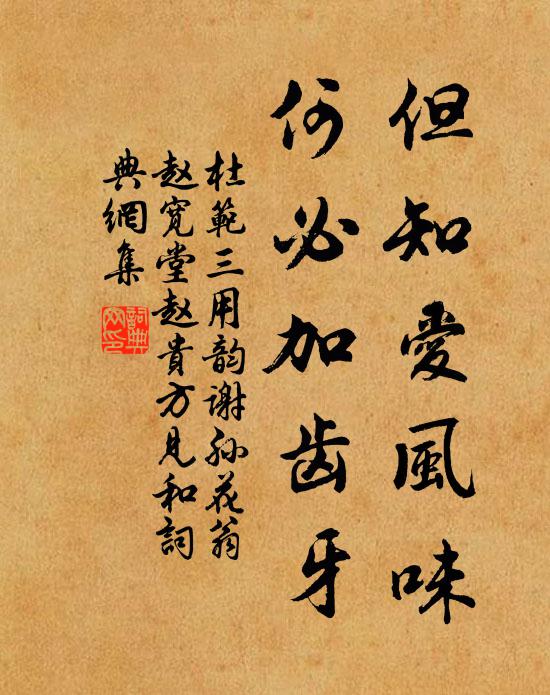 但知愛風味
何必加齿牙
杜範三用韵谢孙花翁
赵宽堂赵貴方見和詞
典網集
詞典网印